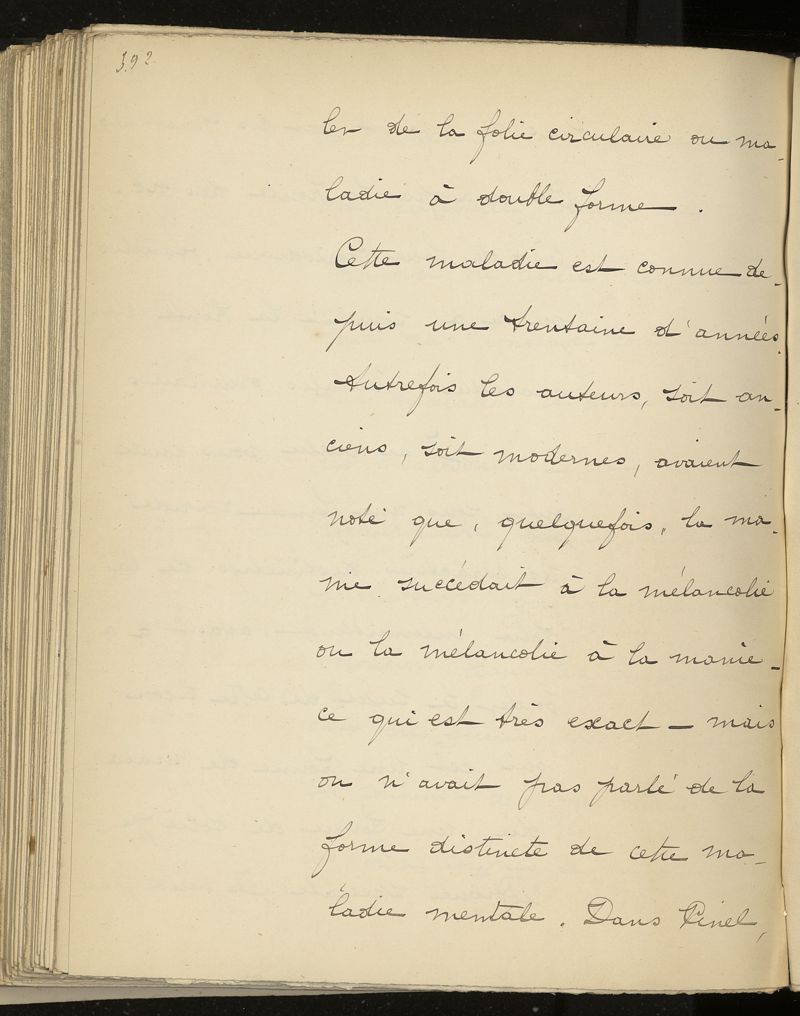 392
ler de la folie circulaire ou ma-
ladie à double forme.
Cette maladie est connue de-
puis une trentaine d'années.
Autrefois les auteurs, soit an-
ciens, soit modernes, avaient
noté que, quelquefois, la ma-
nie succédait à la mélancolie
ou la mélancolie à la manie -
ce qui est très exact - mais
on n'avait pas parlé de la
forme distincte de cette ma-
ladie mentale. Dans Pinel,